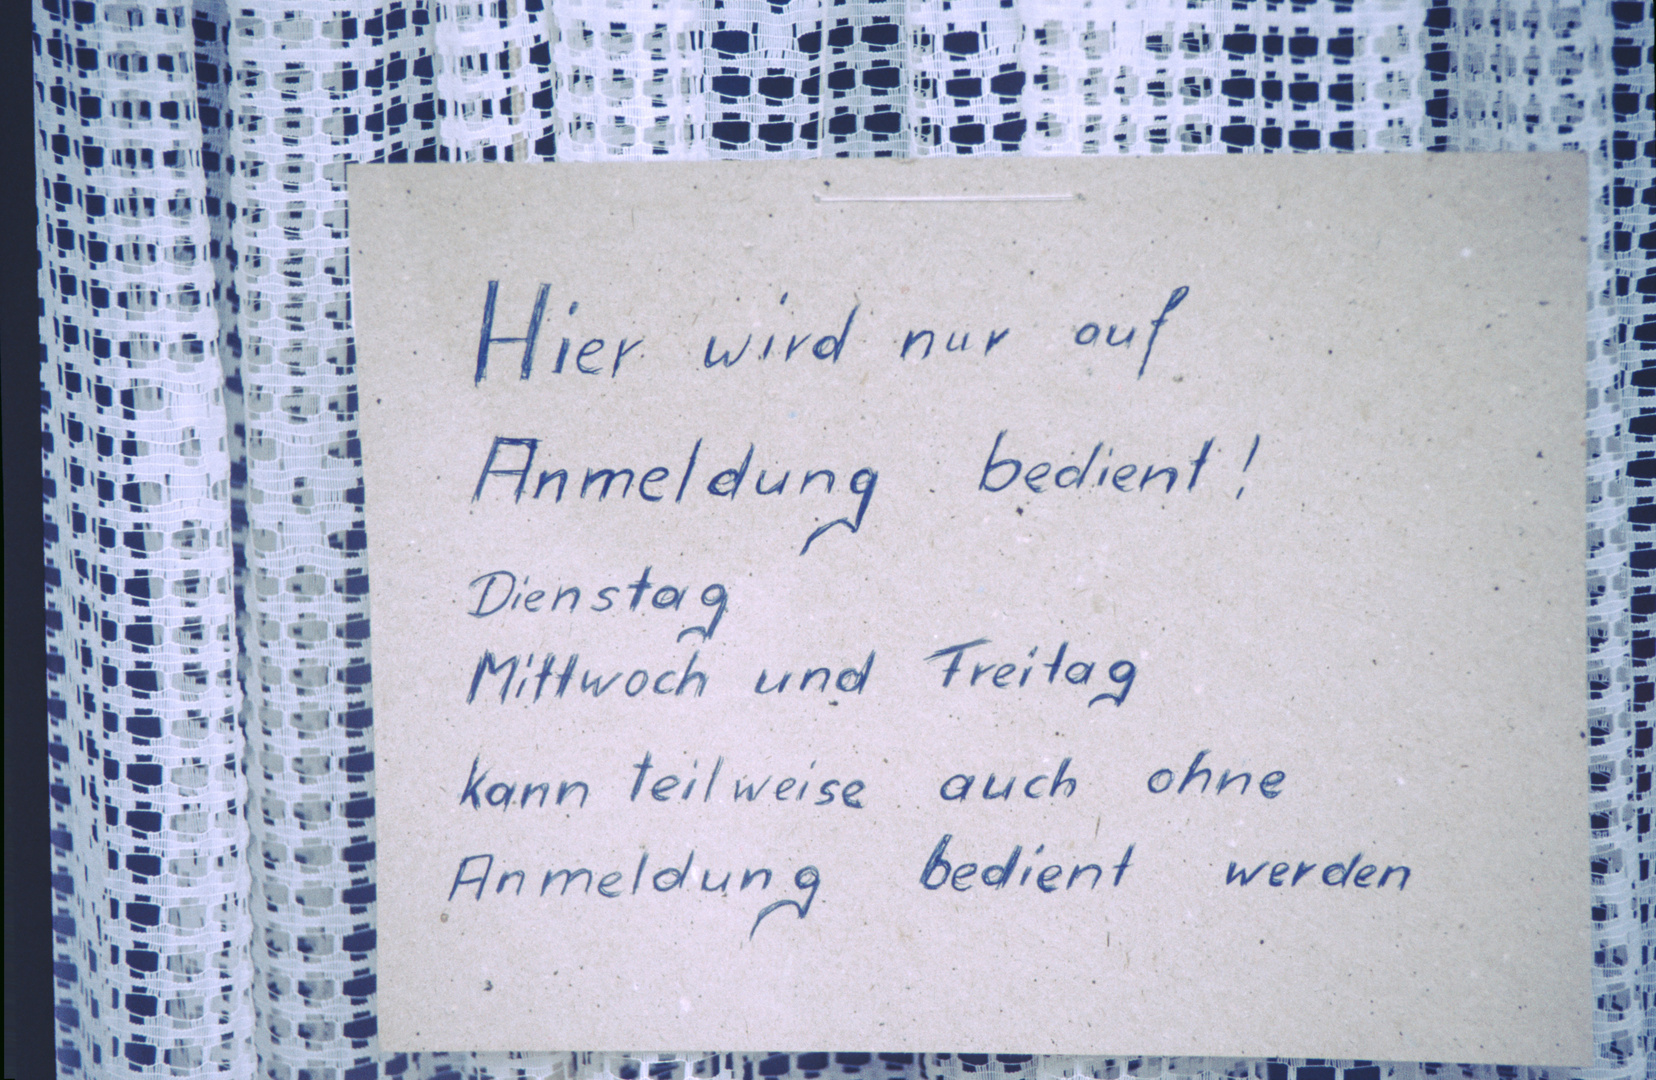 Hier wird nur auf
Anmeldung bedient!
Dienstag
Mittwoch und Freitag
kann teilweise auch ohne
Anmeldung bedient werden